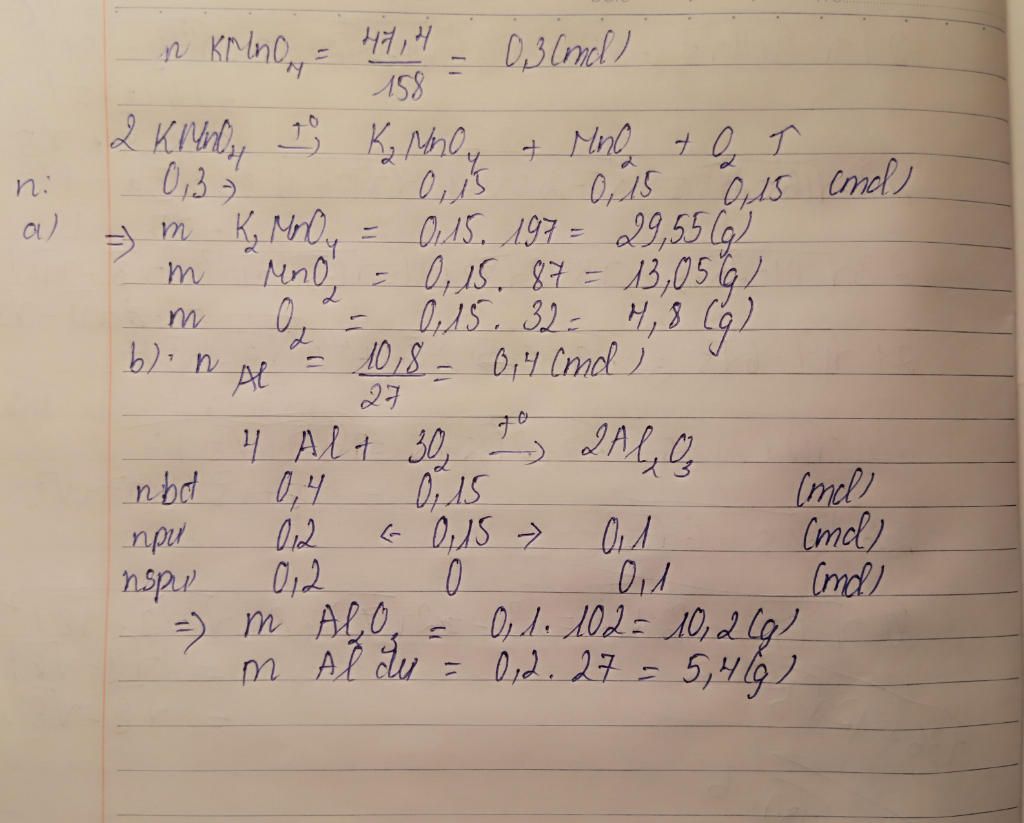 n KMnO₄ = 47,4/158 = 0,3 (mol)
2 KMnO₄ —t⁰→ K₂MnO₄ + MnO₂ + O₂ ↑
n: 0,3 → 0,15 0,15 0,15 (mol)
a) => m K₂MnO₄ = 0,15. 197 = 29,55 (g)
m MnO₂ = 0,15. 87 = 13,05 (g)
m O₂ = 0,15. 32 = 4,8 (g)
b): n Al = 10,8/27 = 0,4 (mol)
4 Al + 3O₂ —t⁰→ 2Al₂O₃
nbđ 0,4 0,15 (mol)
npư 0,2 <- 0,15 -> 0,1 (mol)
nspư 0,2 0 0,1 (mol)
=> m Al₂O₃ = 0,1. 102 = 10,2 (g)
m Al dư = 0,2. 27 = 5,4 (g)